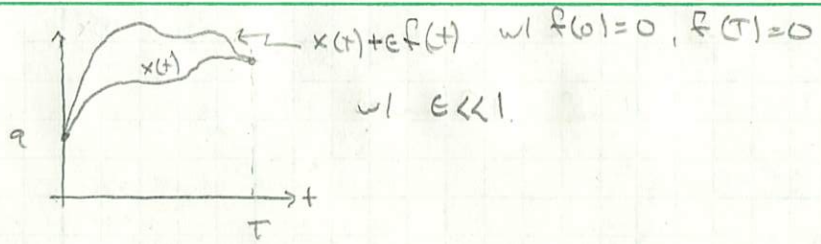 x(t)+ϵf(t) w/ f(0)=0, f(T)=0
x(t)
w/ ϵ<<1.
a
t
T